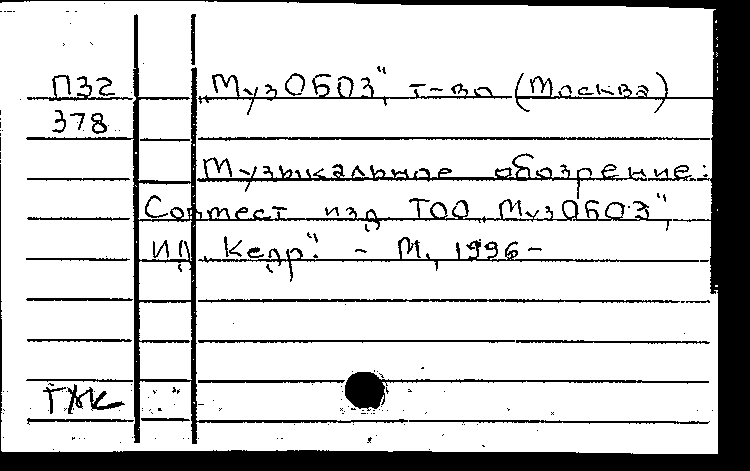 П32 „МузОБОЗ", т-во (Москва)
378
Музыкальное обозрение:
Совмест изд ТОО „МузОБОЗ",
ИД „Кедр". - М., 1996-
ГЖК